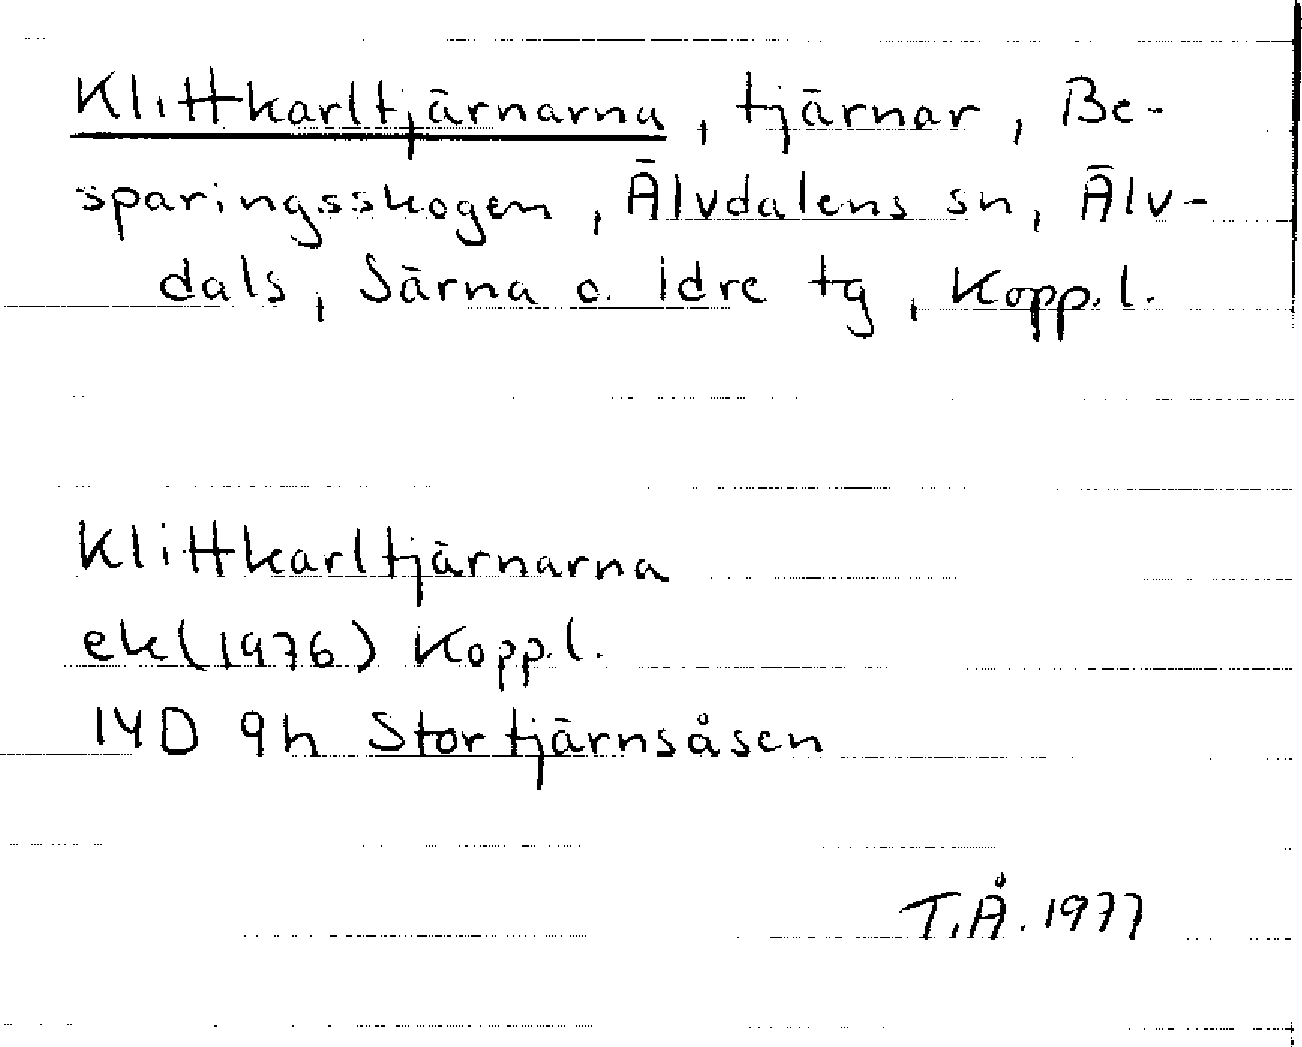 Klittkarltjärnarna, tjärnar, Be-
sparingsskogen, Älvdalens sn, Älv-
dals, Särna o. Idre tg, Kopp.l.
Klittkarltjärnarna
ek(1976) Kopp.l.
14D 9h Stortjärnsåsen
T.Å. 1977